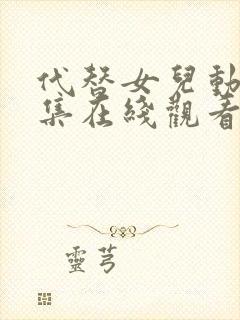 代替女兒動
集在綫觀看
靈芎